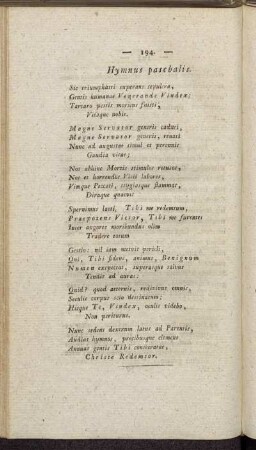 — 194. —
Hymnus paschalis.
Sic triumphasti superans sepulcra,
Gentis humanae Venerande Vindex;
Tartara pestis moriens fuisti,
Vitaque nobis.
Magne Servator generis caduci,
Magne Servator generis, renati
Nunc ad augustae simul et perennis
Gaudia vitae;
Nos abhinc Mortis stimulos retusae,
Nos et horrendae Vitii labores,
Vimque Peccati, stygiasque flammas,
Dirague
Spernimus laeti, Tibi me redemtum,
Praepotens Victor, Tibi me
Inter angores moribundus olim
Tradere certum
Gestio: nil iam metuit pericli,
Qui, Tibi fidens, animo, Benignum
Numen exspectat, superasque
Tendit ad auras:
Quid? quod aeternis, redeunte carne,
Seculis corpus sitio
Hisque Te, Vindex, oculis videbo,
Non periturus.
Nunc sedens dextrum latus ad Parentis,
Audias hymnos, precibusque clemens
Annuas gentis Tibi consecratae,
Christe Redemtor.